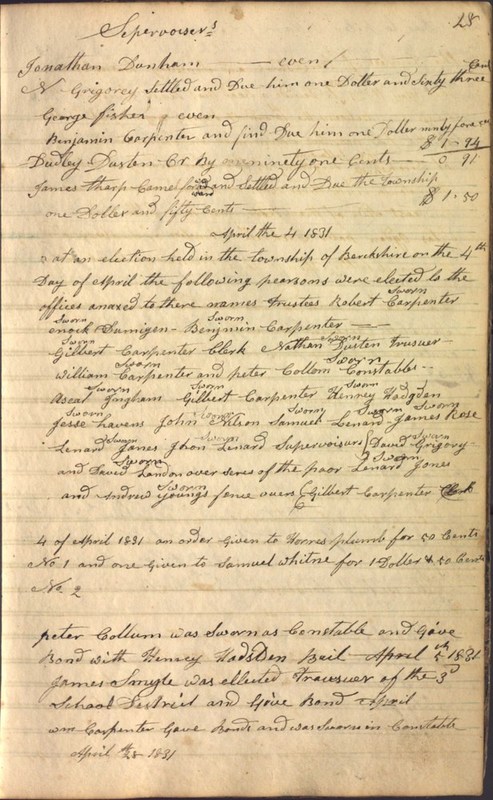 28
Supervoisers
Jonathan Dunham — even
N Grigorey Settled and Due him one Doller and Sixty three Cents
George fisher even
Benjamin Carpenter and find Due him one Doller ninty fore cts
$ 1-94
Dudley Dusten Cr By ninety one Cents — 0 91
James tharp Came forad and Settled and Due the township
ward
$ 1.50
one Doller and fifty Cents —
April the 4 1831
at an election held in the township of Berckshire on the 4th
Day of April the following pearsons were elected to the
offices anaxed to there names trusties Robert Carpenter
Sworn
enock Dumigen - Benjemin Carpenter
Sworn Sworn
Gilbert Carpenter Clerk Nathan Dusten trusuer
Sworn Sworn
William Carpenter and peter Collom Constables
Sworn Sworn
Ascal Jingham Gilbert Carpenter Henrey Hodgden
Sworn Sworn Sworn
Jesse havens John Wilson Samuel Lenard James Rose
Sworn Sworn Sworn Sworn Sworn
Lenard James Jhon Lenard Supervoisurs David Grigory
Sworn Sworn Sworn
and David Landon over seres of the poor Lenard Jones
Sworn Sworn
and Andrew youngs fence vuers Gilbert Carpenter Clerk
Sworn
4 of April 1831 an order given to Horres plumb for 50 Cents
No 1 and one Given to Samuel Whitne for 1 Doller & 50 Cents
No 2
peter Collum was Sworn as Constable and Gave
Bond with Henrey Hodsden Bail - April 5th 1831
James Smyle was ellected Treasuer of the 3d
School District and Give Bond April
Wm Carpenter Gave Bonds and was Sworn in Constable
April 1831